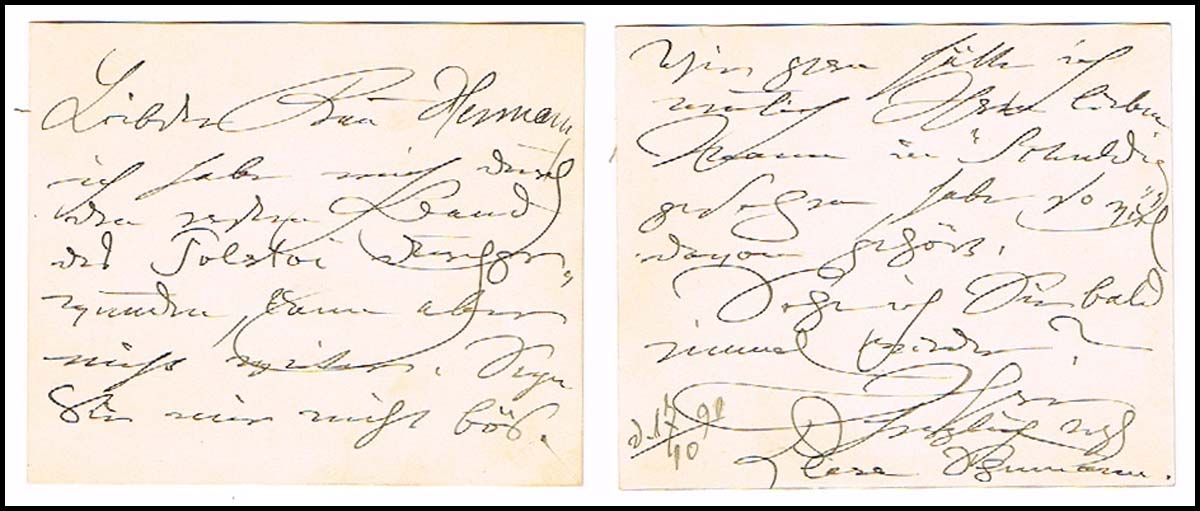 Liebste Frau Hermann
ich habe mich durch
den ersten Band
des Tolstoi durchge„
wunden, kann aber
nicht weiter. Seyn
Sie mir nicht böß.
Wie gern hätte ich
neulich Ihren lieben
Mann in "Schuldig"
gesehen, habe so viel
davon gehört.
Sehe ich Sie bald
einmal wieder?
Ihre
herzlich erg
Clara Schumann.
d. 17/10 91